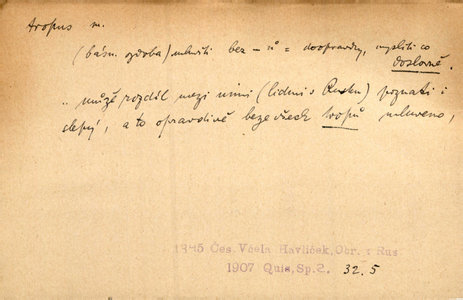 tropus m.
(básn. ozdoba) mluviti bez - ů = doopravdy, mysliti co
doslovně.
„ může rozdíl mezi nimi (lidmi s Rusku) poznati i
slepý, a to opravdivě beze všech tropů mluveno,
1845 Čes. Včela Havlíček, Obr. z Rus
1907 Quis, Sp. 2. 32.5